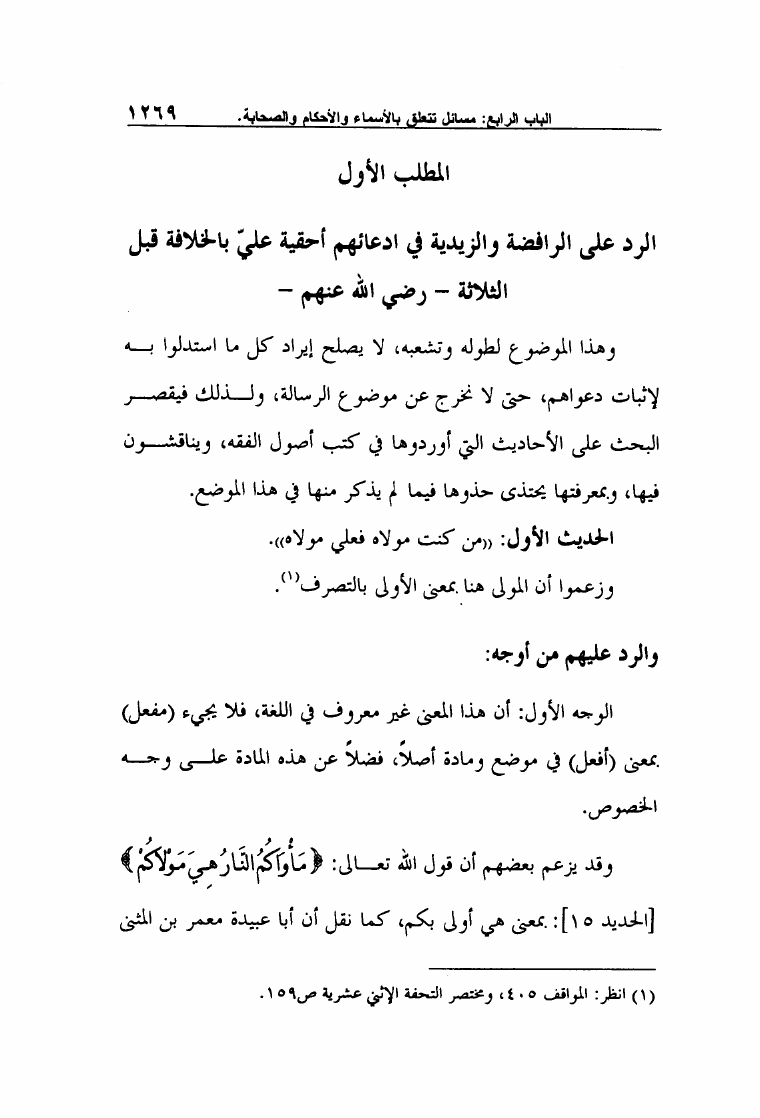 الباب الرابع: مسائل تتعلق بالأسماء والأحكام والصحابة. ١٢٦٩
المطلب الأول
الرد على الرافضة والزيدية في ادعائهم أحقية عليّ بالخلافة قبل
الثلاثة – رضي الله عنهم –
وهذا الموضوع لطوله وتشعبه، لا يصلح إيراد كل ما استدلوا بـــه
لإثبات دعواهم، حتى لا نخرج عن موضوع الرسالة، ولـــذلك فيقصـــر
البحث على الأحاديث التي أوردوها في كتب أصول الفقه، ويناقشـــون
فيها، وبمعرفتها يحتذى حذوها فيما لم يذكر منها في هذا الموضع.
الحديث الأول: ((من كنت مولاه فعلي مولاه)).
وزعموا أن المولى هنا بمعنى الأولى بالتصرف(١).
والرد عليهم من أوجه:
الوجه الأول: أن هذا المعنى غير معروف في اللغة، فلا يجيء (مفعل)
بمعنى (أفعل) في موضع ومادة أصلاً، فضلاً عن هذه المادة علـــى وجـــه
الخصوص.
وقد يزعم بعضهم أن قول الله تعـــالى: ﴿مَأْوَاكُمُ النَّارُ هِيَ مَوْلَاكُمْ﴾
[الحديد ١٥]: بمعنى هي أولى بكم، كما نقل أن أبا عبيدة معمر بن المثنى
(١) انظر: المواقف ٤٠٥، ومختصر التحفة الإثني عشرية ص١٥٩.